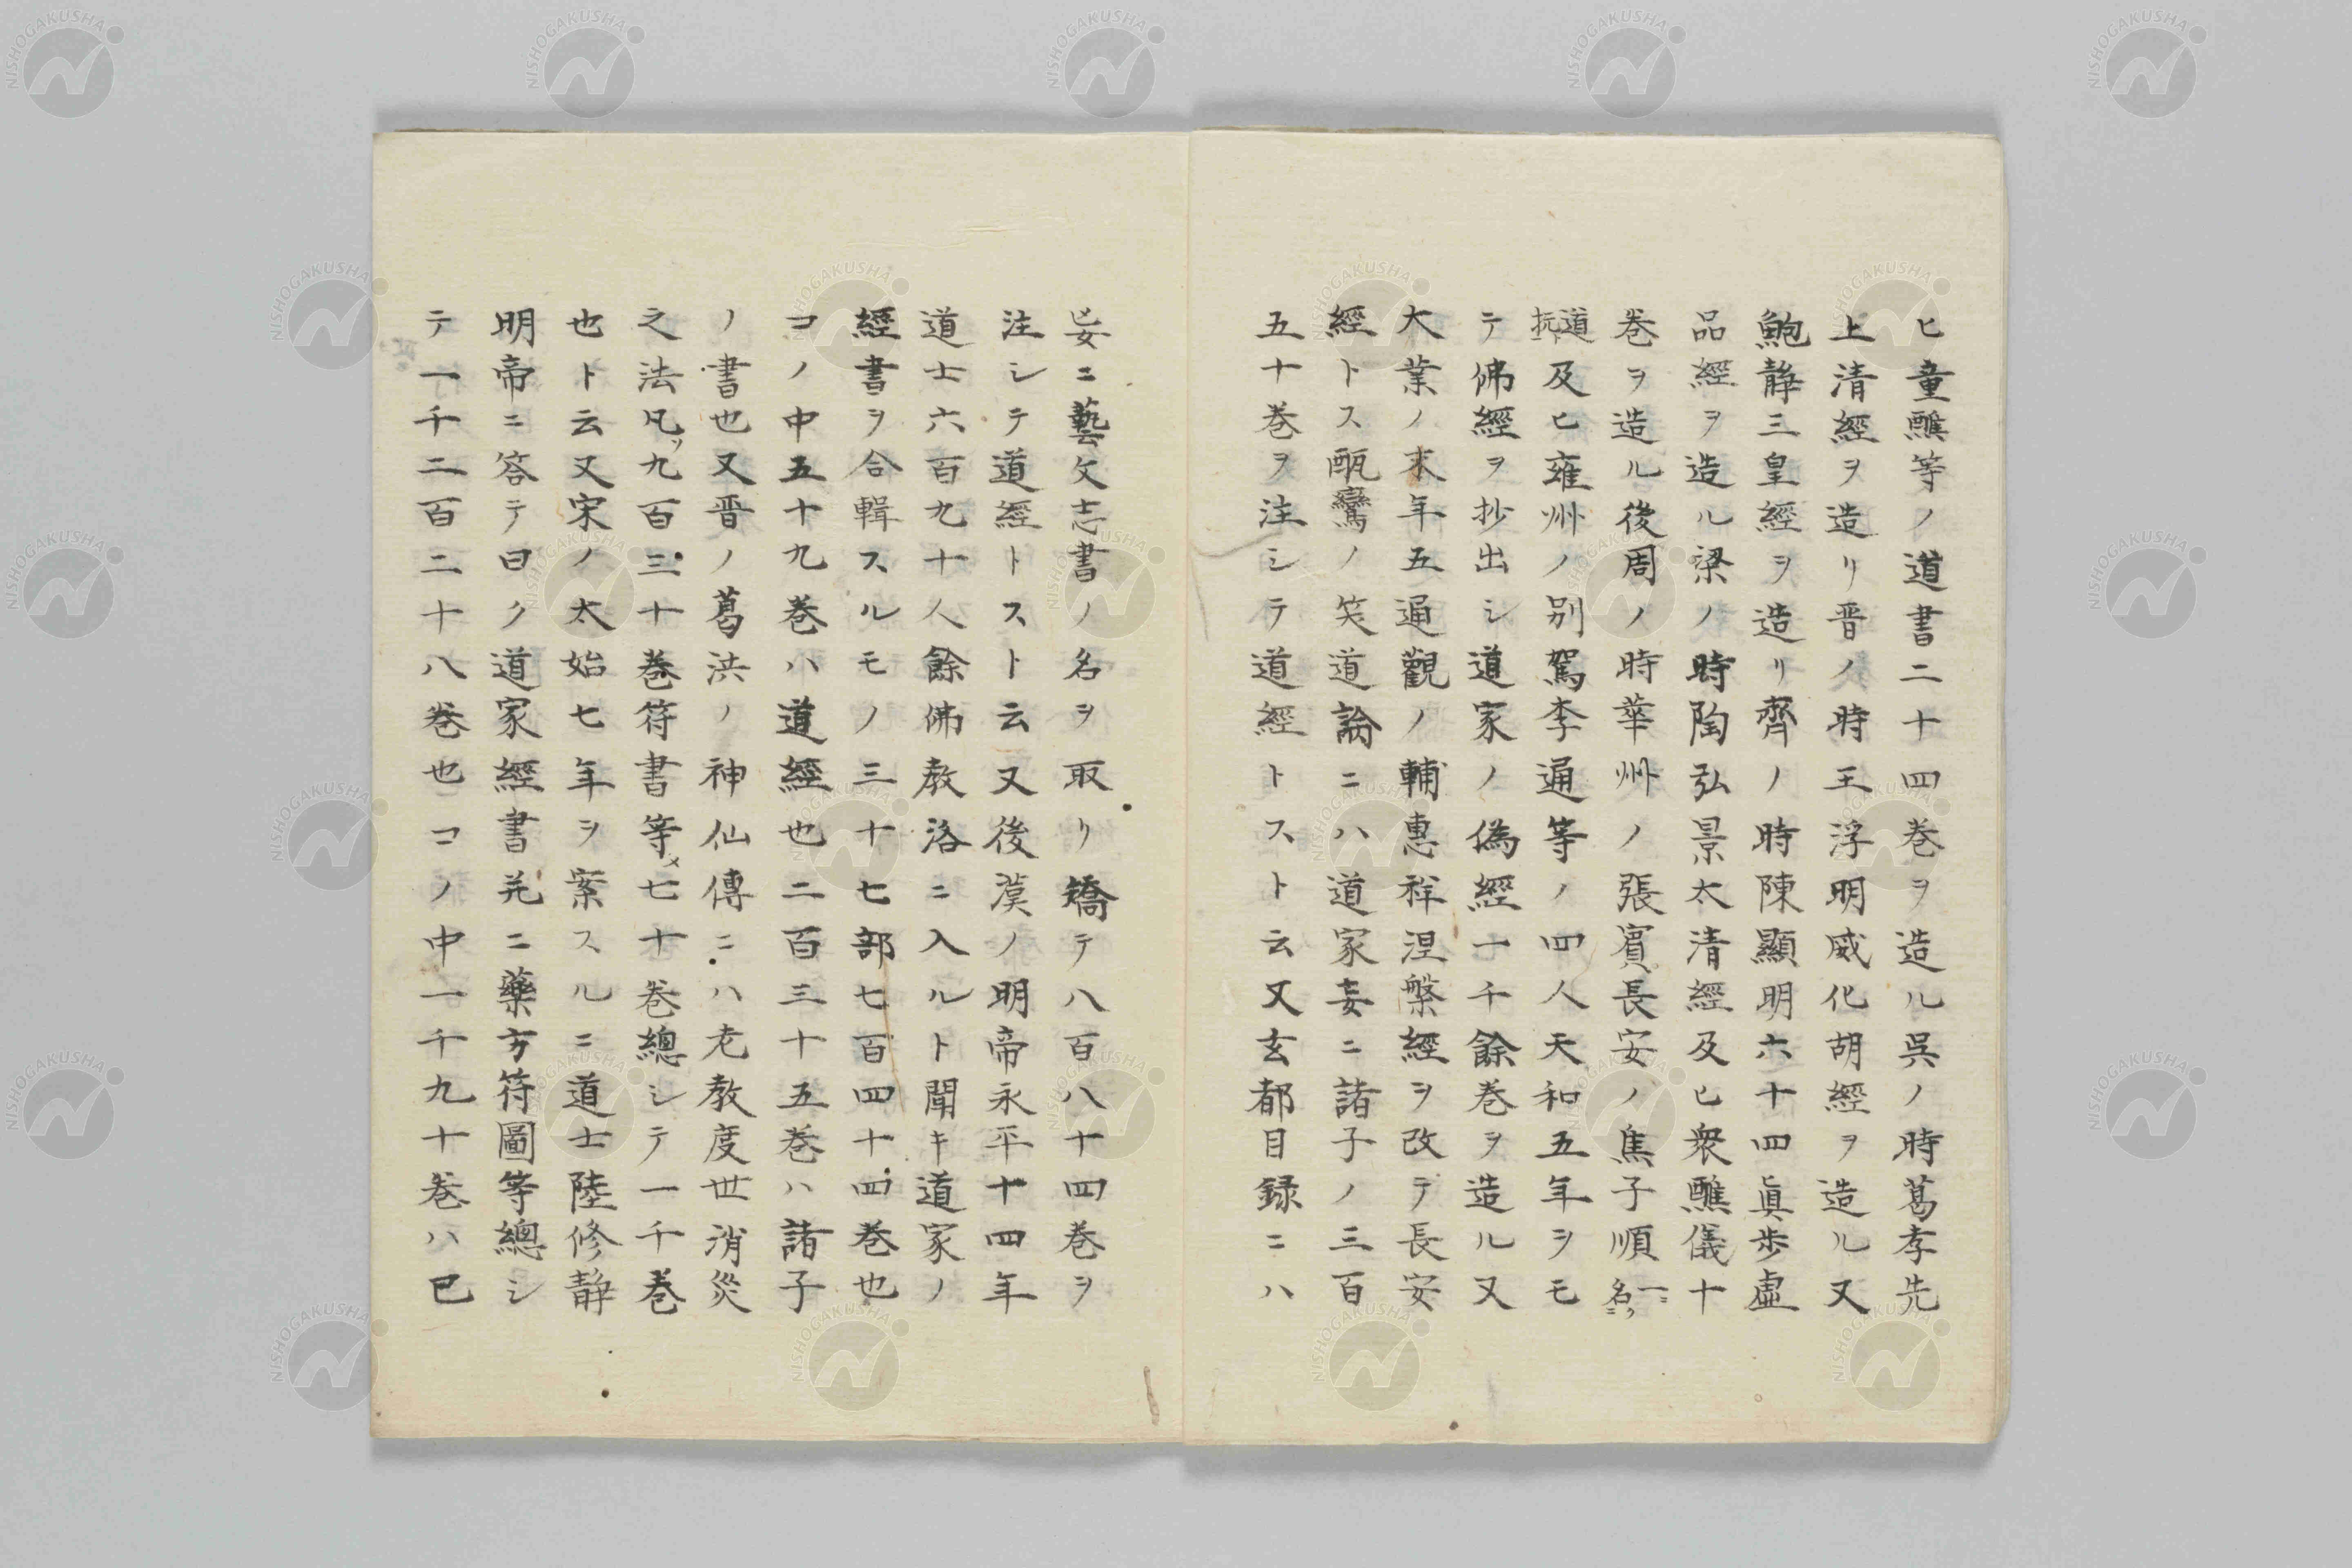 ヒ童醮等ノ道書二十四巻ヲ造ル呉ノ時葛孝先
上清經ヲ造リ晋ノ時王浮明威化胡經ヲ造ル又
鮑静三皇經ヲ造リ齊ノ時陳顯明六十四眞歩虚
品經ヲ造ル梁ノ時陶弘景太清經及ヒ衆醮儀十
巻ヲ造ル後周ノ時華州ノ張賓長安ノ焦子順一ニ名ニ
道抗及ヒ雍州ノ別駕李通等ノ四人天和五年ヲモ
テ佛經ヲ抄出シ道家ノ偽經一千餘巻ヲ造ル又
大業ノ末年五通觀ノ輔惠祥涅槃經ヲ改テ長安
經トス甄鸞ノ笑道論ニハ道家妄ニ諸子ノ三百
五十巻ヲ注シテ道經トスト云又玄都目録ニハ
妄ニ藝文志書ノ名ヲ取リ矯テ八百八十四巻ヲ
注シテ道經トスト云又後漢ノ明帝永平十四年
道士六百九十人餘佛教洛ニ入ルト聞キ道家ノ
經書ヲ合輯スルモノ三十七部七百四十四巻也
コノ中五十九巻ハ道經也二百三十五巻ハ諸子
ノ書也又晋ノ葛洪ノ神仙傳ニハ老教度世消災
之法凡ソ九百三十巻符書等七十巻總シテ一千巻
也ト云又宋ノ太始七年ヲ案スルニ道士陸修静
明帝ニ答テ曰ク道家經書并ニ藥方符圖等總シ
テ一千二百二十八巻也コノ中一千九十巻ハ已